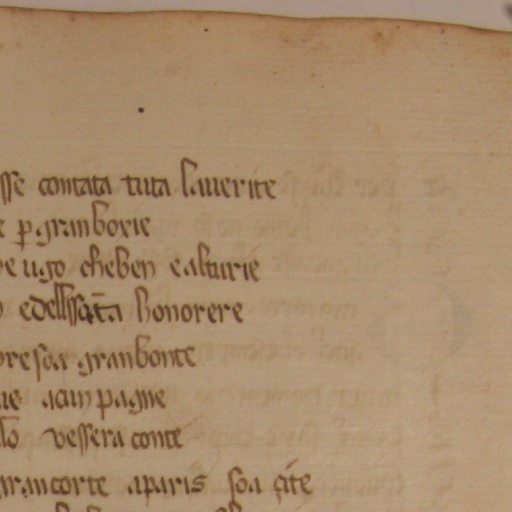 sse contata tuta lauerite
e p̲ granborie
re ugo cheben ealturie
edellissãta honorere
pre soa granbonte
acun pagne
vessera conte
grancorte aparis soa çite